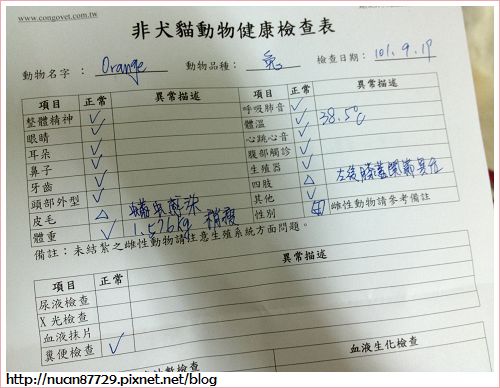 www.congovet.com.tw
非犬貓動物健康檢查表
動物名字： Orange 動物品種： 兔 檢查日期： 101.9.19
項目 正常 異常描述
整體精神 ✓ 呼吸肺音 ✓
眼睛 ✓ 體溫 ✓ 38.5℃
耳朵 ✓ 心跳心音 ✓
鼻子 ✓ 腹部觸診 ✓
牙齒 ✓ 生殖器 ✓
頭部外型 ✓ 四肢 △ 左後膝蓋關節異位
皮毛 △ 其他 ✓
體重 ✓ 1.576kg 稍瘦 性別 雌性動物請參考備註
備註：未結紮之雌性動物請注意生殖系統方面問題。
項目 正常 異常描述
尿液檢查
X光檢查
血液抹片
糞便檢查 ✓
血液生化檢查
http://nuan87729.pixnet.net/blog